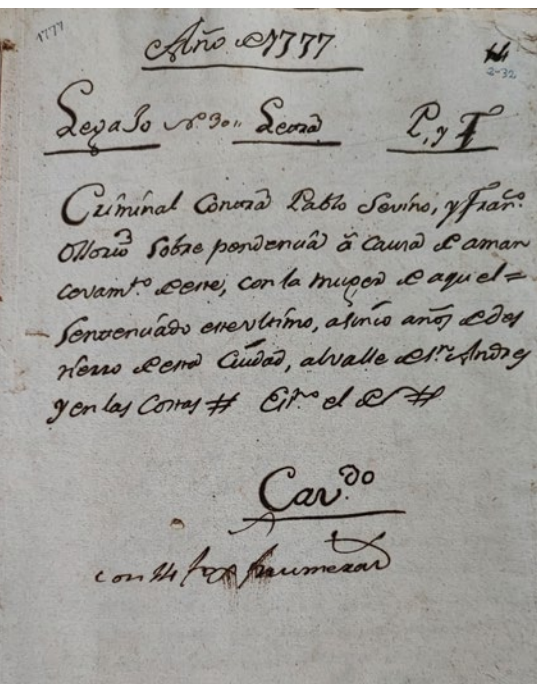 1777
Año de 1777
14
2-32
Legajo N.º 30,, Letra P, y F
Criminal Contra Pablo Sevino, y Fran.co
Ossorio sobre pendencia â causa de aman
cevam.to de este, con la muger de aquel =
Sentenciado este ultimo, a sinco años de des
tierro de esta Ciudad, al valle de S.n Andres
y en las Costas # el de #
Cav.do
con 14 foxs